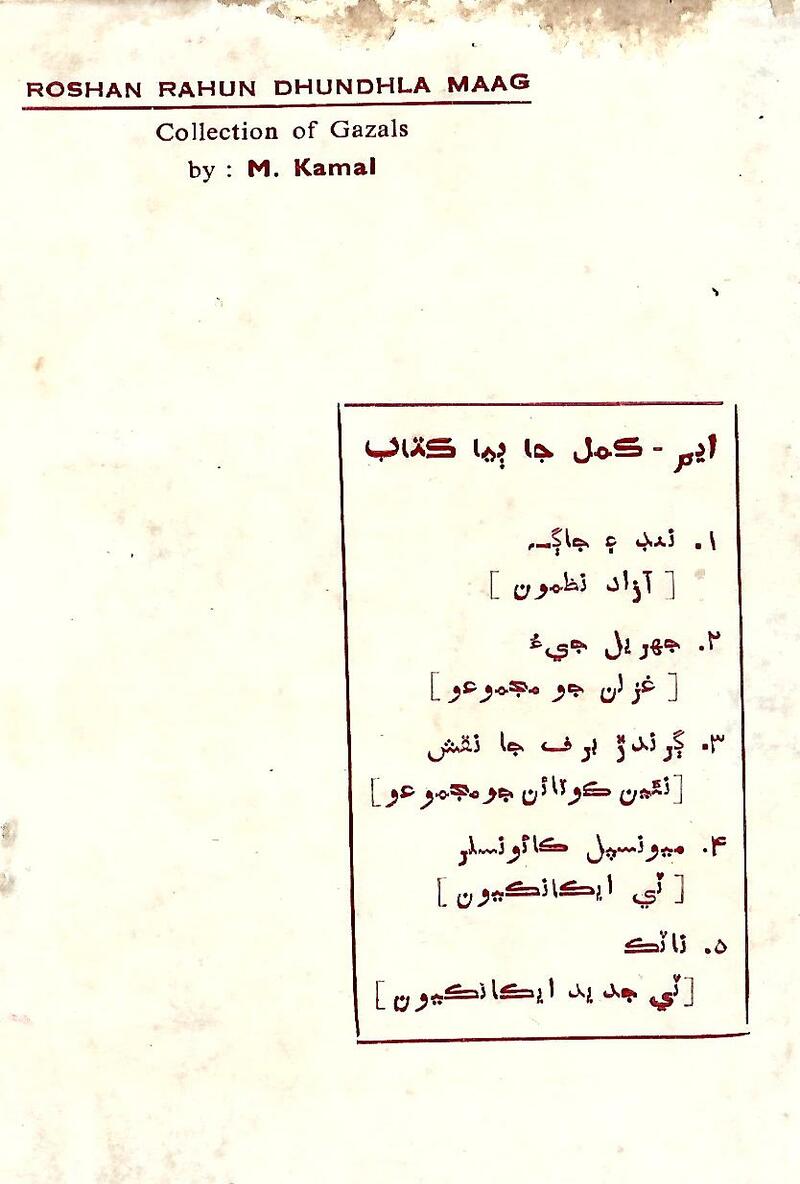 ROSHAN RAHUN DHUNDHLA MAAG
Collection of Gazals
by : M. Kamal
ايم - ڪمل جا ٻيا ڪتاب
۱. ننڊ ۽ جاڳہ
[ آزاد نظمون ]
۲. جهريل جيءُ
[ غزلن جو مجموعو ]
۳. ڳرندڙ برف جا نقش
[نئين ڪوتائن جو مجموعو]
۴. ميونسپل ڪائونسلر
[ ٽي ايڪانڪيون ]
۵. ناٽڪ
[ٽي جديد ايڪانڪيون]